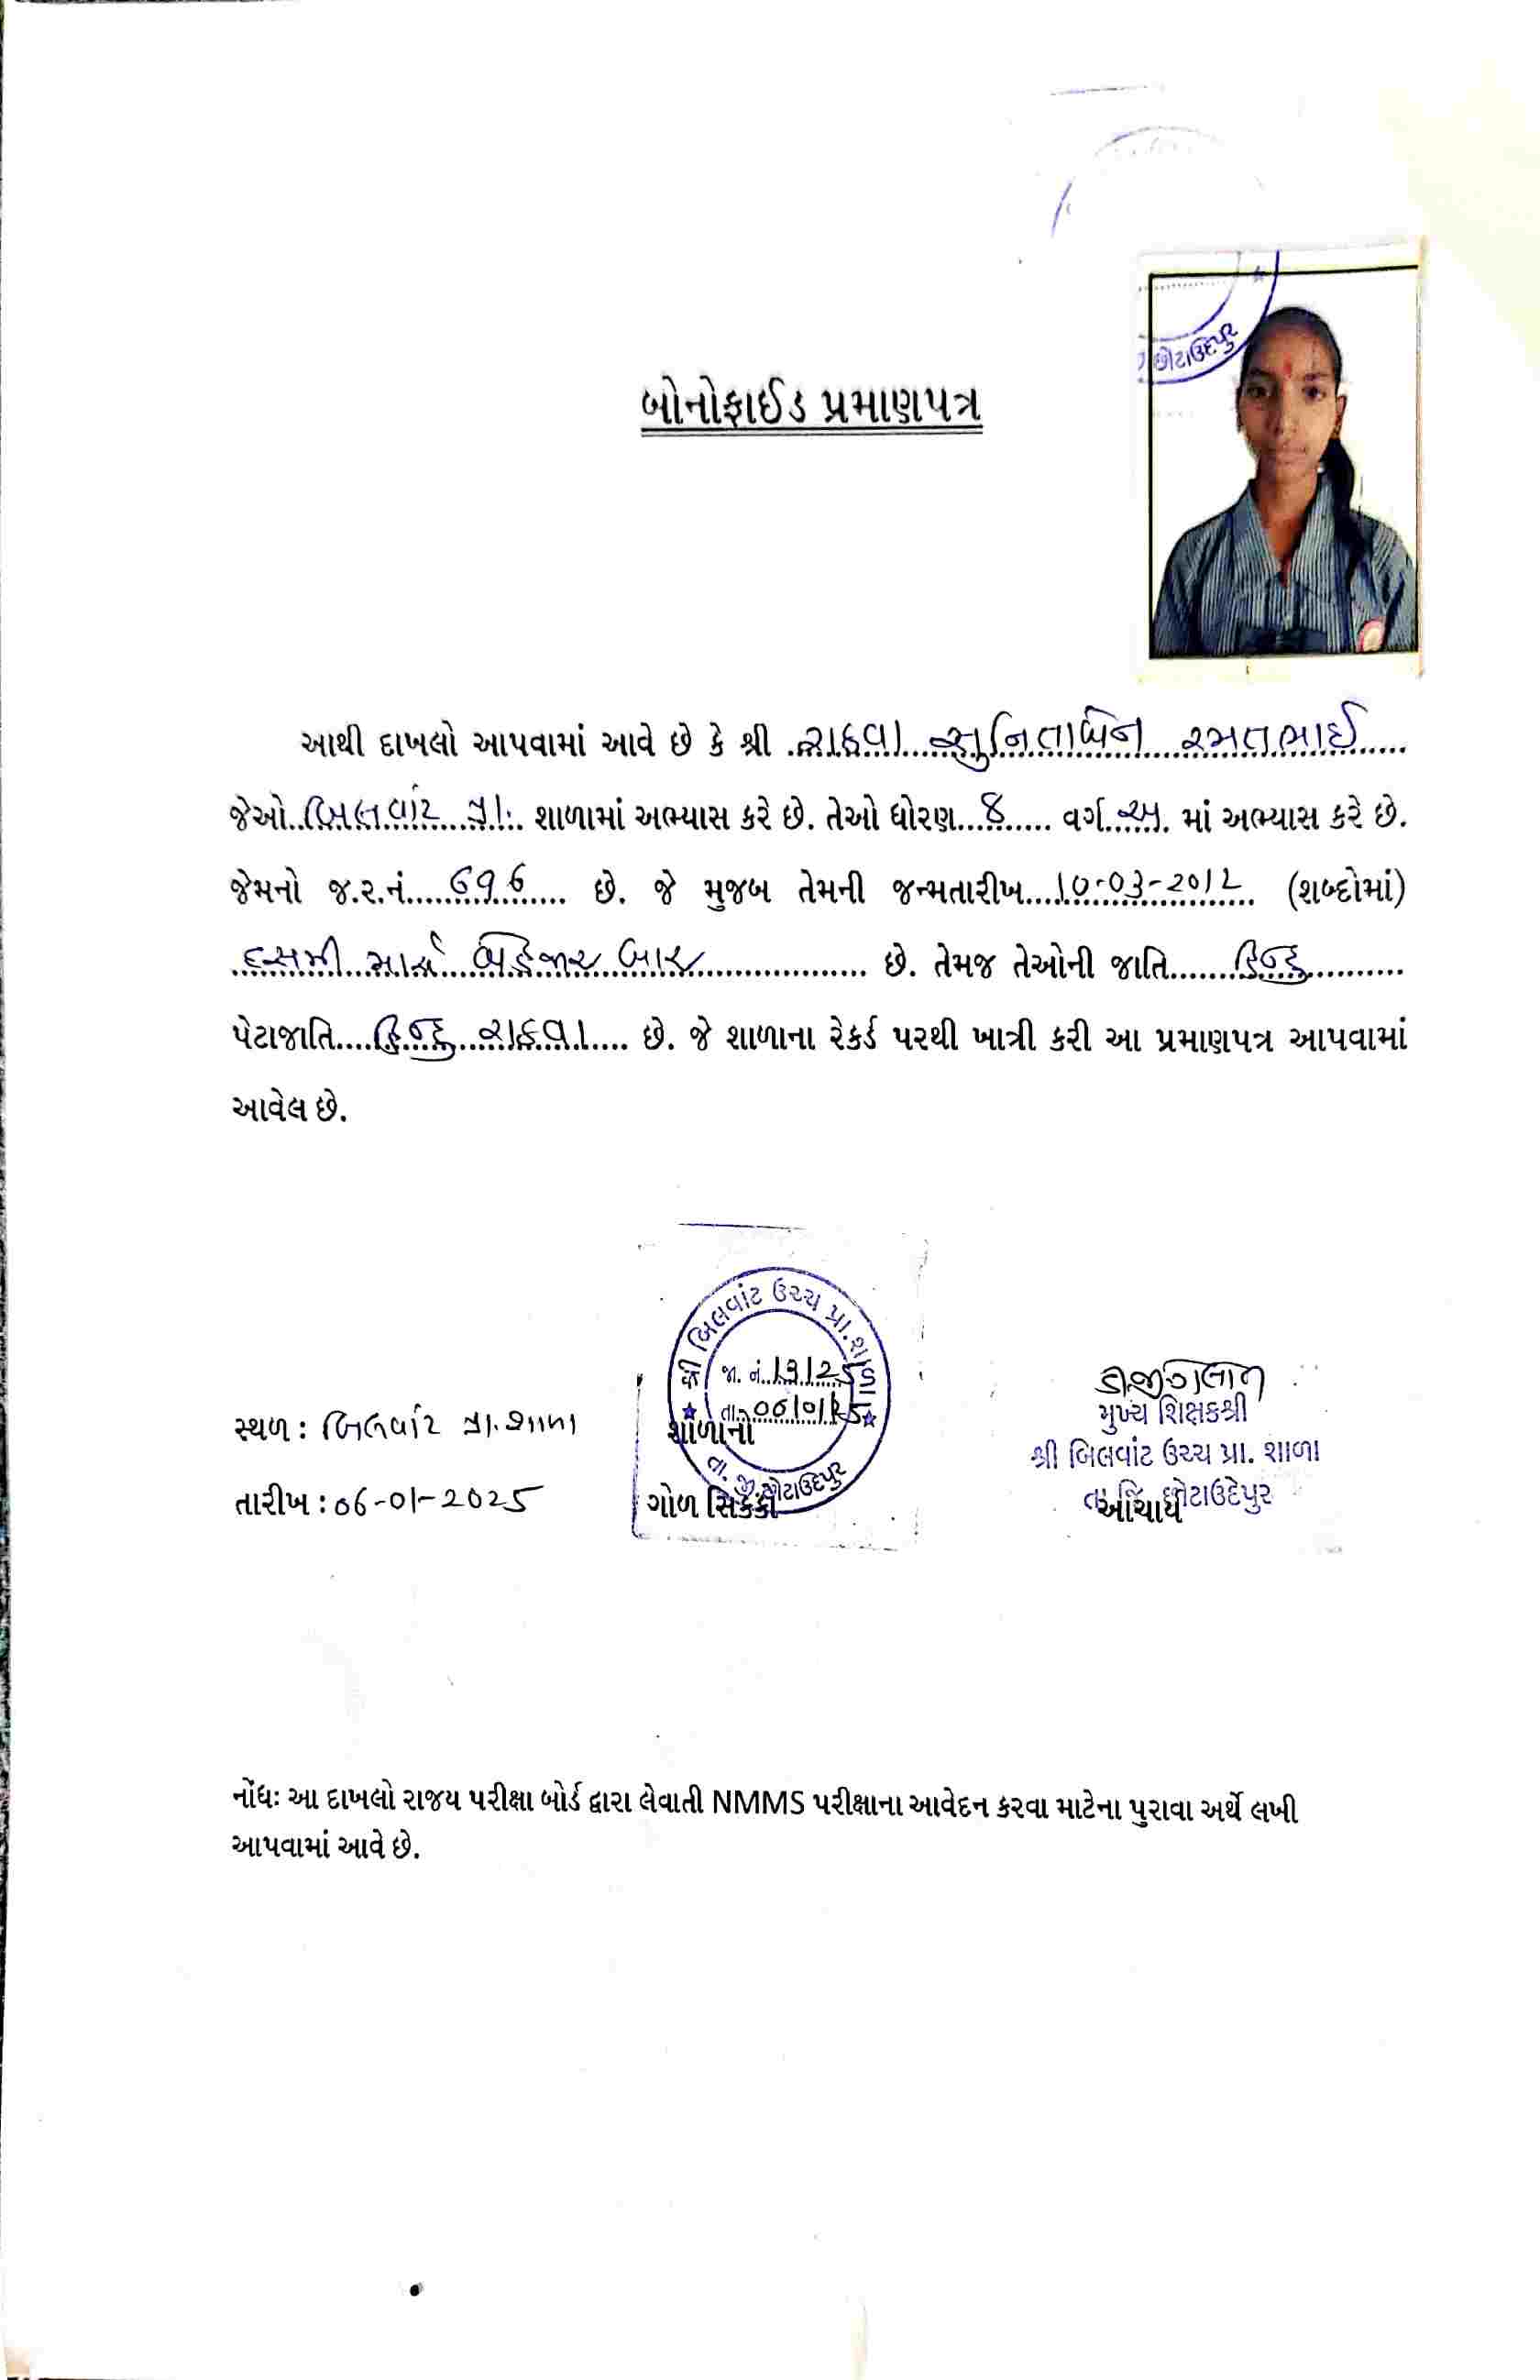 બોનોફાઈડ પ્રમાણપત્ર
છોટાઉદેપુર
આથી દાખલો આપવામાં આવે છે કે શ્રી ..રાઠવા....સુનિતાબેન....રમતભાઈ.....
જેઓ..બિલવાંટ..પ્રા.. શાળામાં અભ્યાસ કરે છે. તેઓ ધોરણ...૪...... વર્ગ..અ. માં અભ્યાસ કરે છે.
જેમનો જ.ર.નં....696.... છે. જે મુજબ તેમની જન્મતારીખ....10-03-2012.. (શબ્દોમાં)
દસમી માર્ચ બે હજાર બાર................ છે. તેમજ તેઓની જાતિ.......હિન્દુ..........
પેટાજાતિ....હિન્દુ...રાઠવા.... છે. જે શાળાના રેકર્ડ પરથી ખાત્રી કરી આ પ્રમાણપત્ર આપવામાં
આવેલ છે.
શ્રી બિલવાંટ ઉચ્ચ પ્રા.શાળા
જા. નં. 19/25
તા. 06/01/25
તા. જી. છોટાઉદેપુર
મુખ્ય શિક્ષકશ્રી
શ્રી બિલવાંટ ઉચ્ચ પ્રા. શાળા
છોટાઉદેપુર
સ્થળ : બિલવાંટ પ્રા.શાળા
શાળાનો
તારીખ : 06-01-2025
ગોળ સિક્કો
આચાર્ય
નોંધઃ આ દાખલો રાજય પરીક્ષા બોર્ડ દ્વારા લેવાતી NMMS પરીક્ષાના આવેદન કરવા માટેના પુરાવા અર્થે લખી
આપવામાં આવે છે.